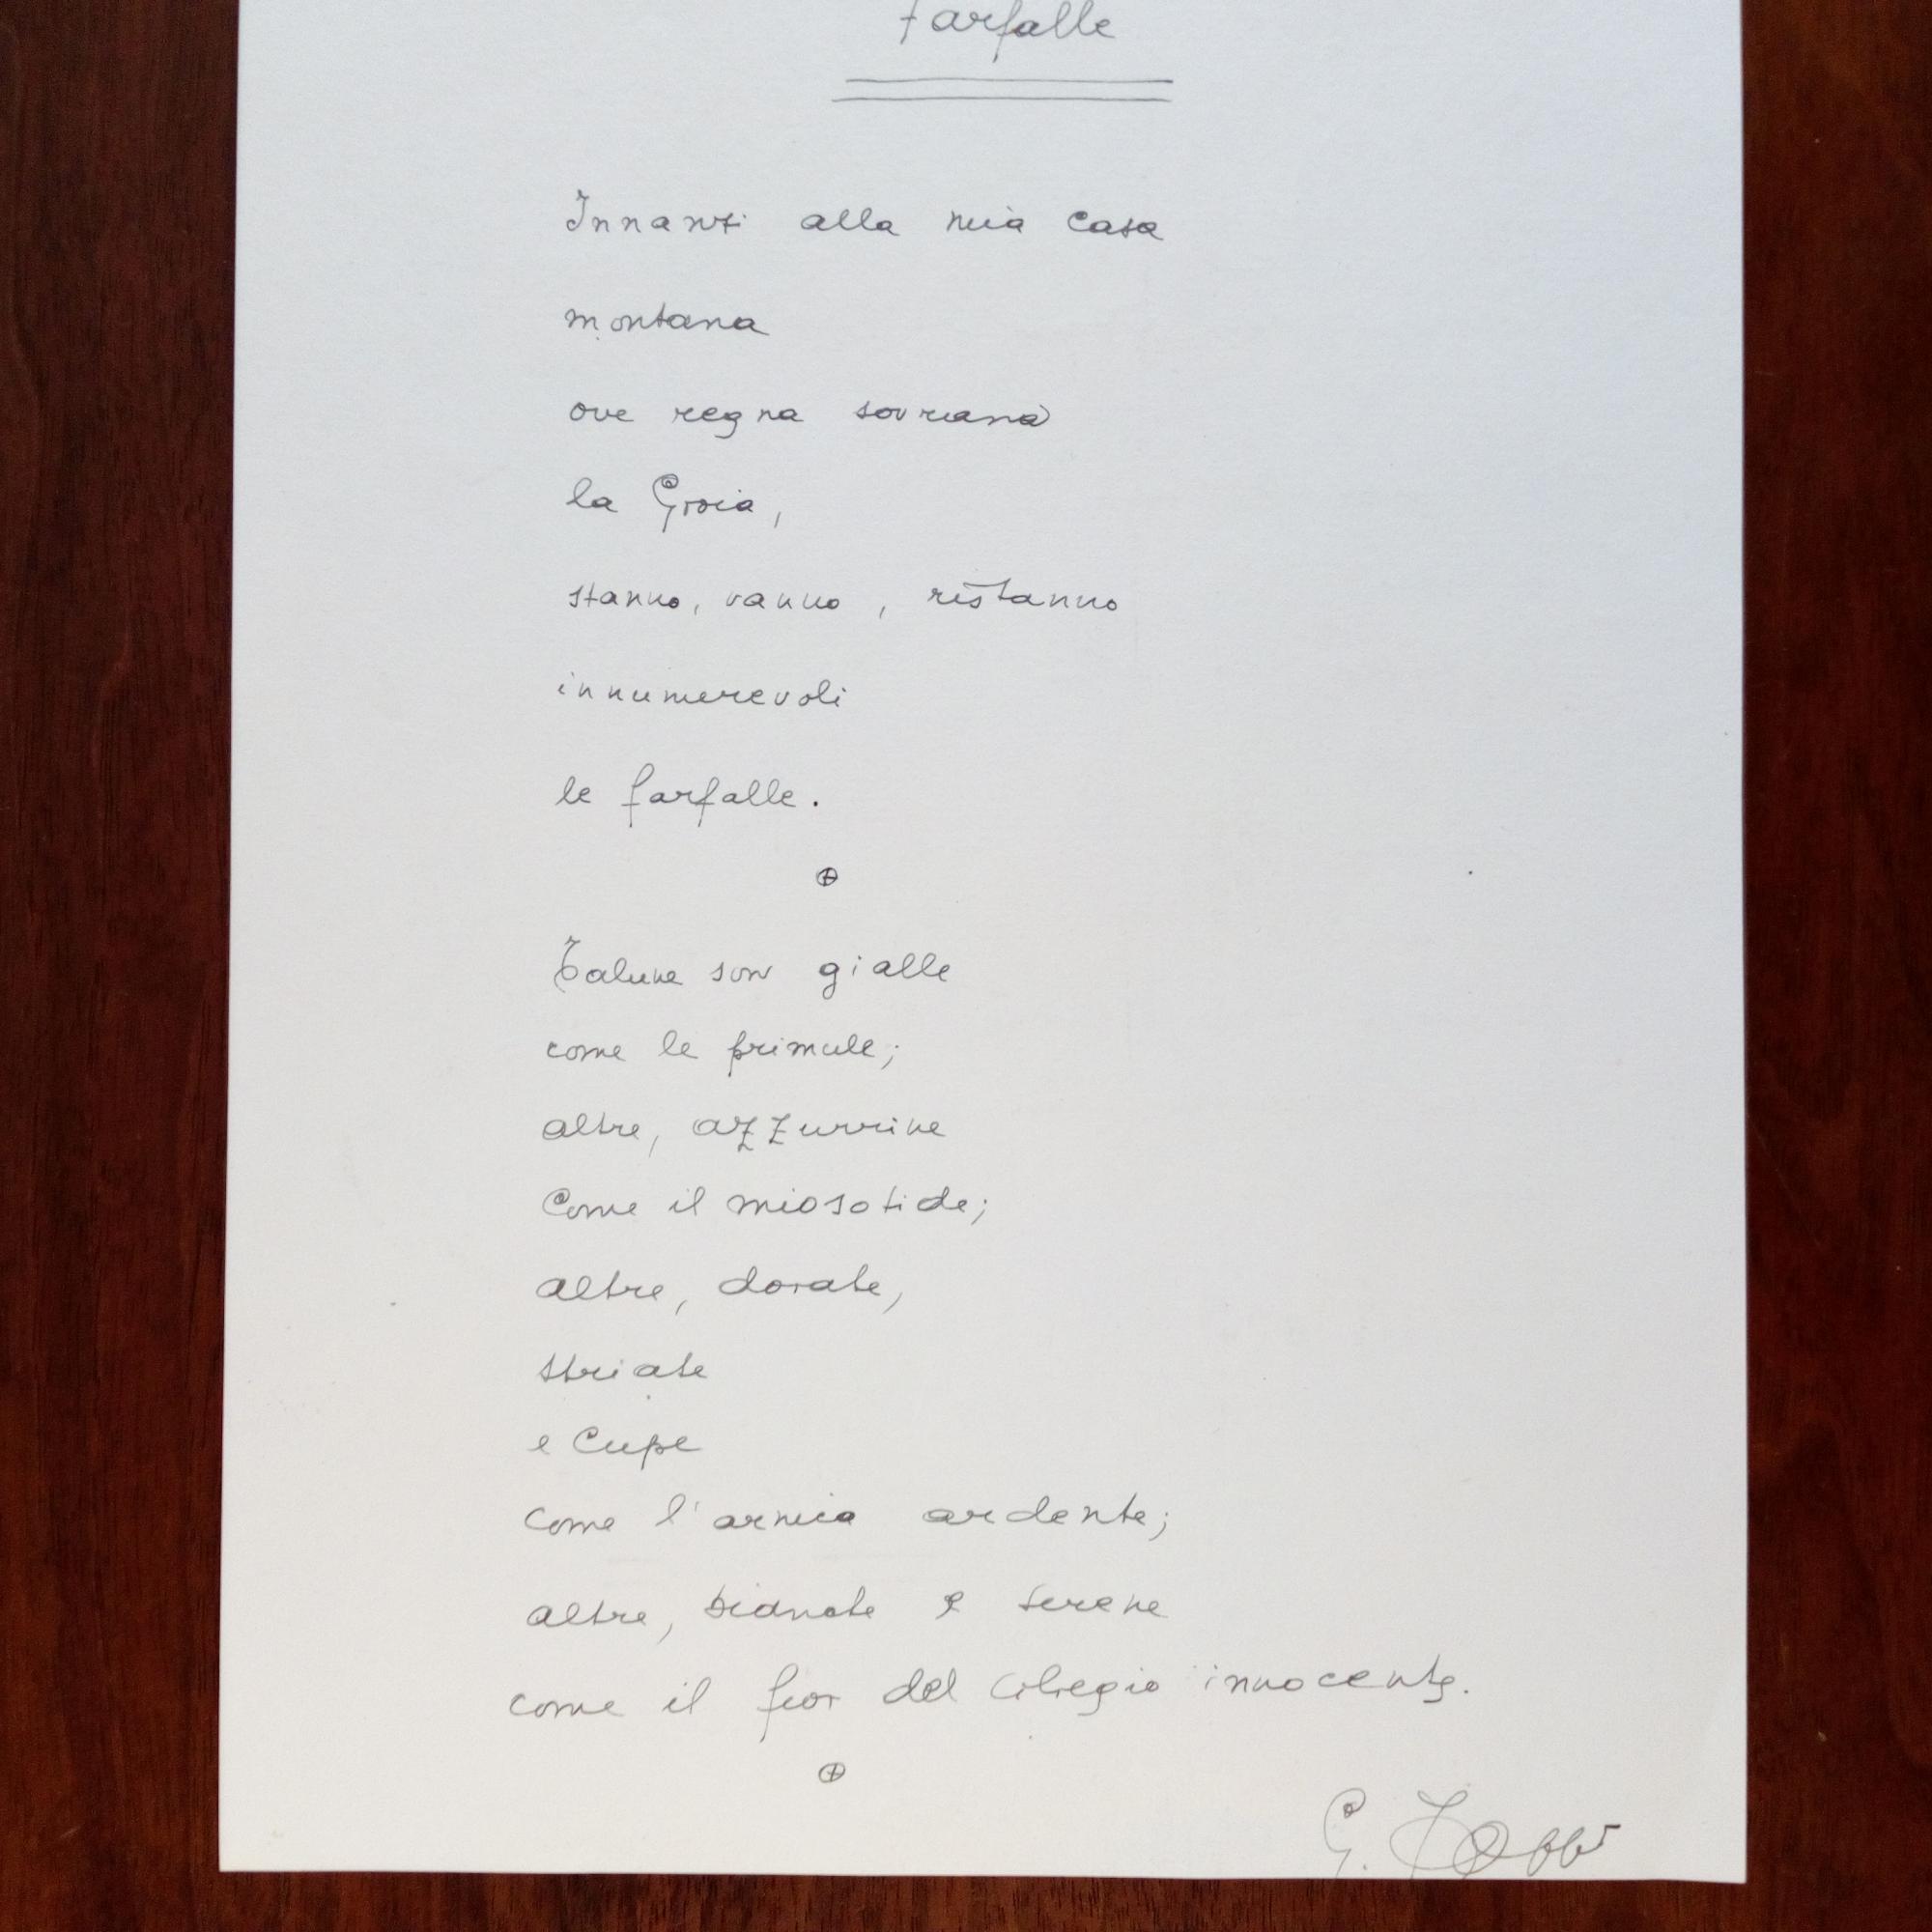 Farfalle
Innanzi alla mia casa
montana
ove regna sovrana
la Gioia,
stanno, vanno, ristanno
innumerevoli
le farfalle.
Talune son gialle
come le primule;
altre, azzurrine
Come il miosotide;
altre, dorate,
striate
e Cupe
come l'arnica ardente;
altre, bianche e serene
come il fior del ciliegio innocente.
G.